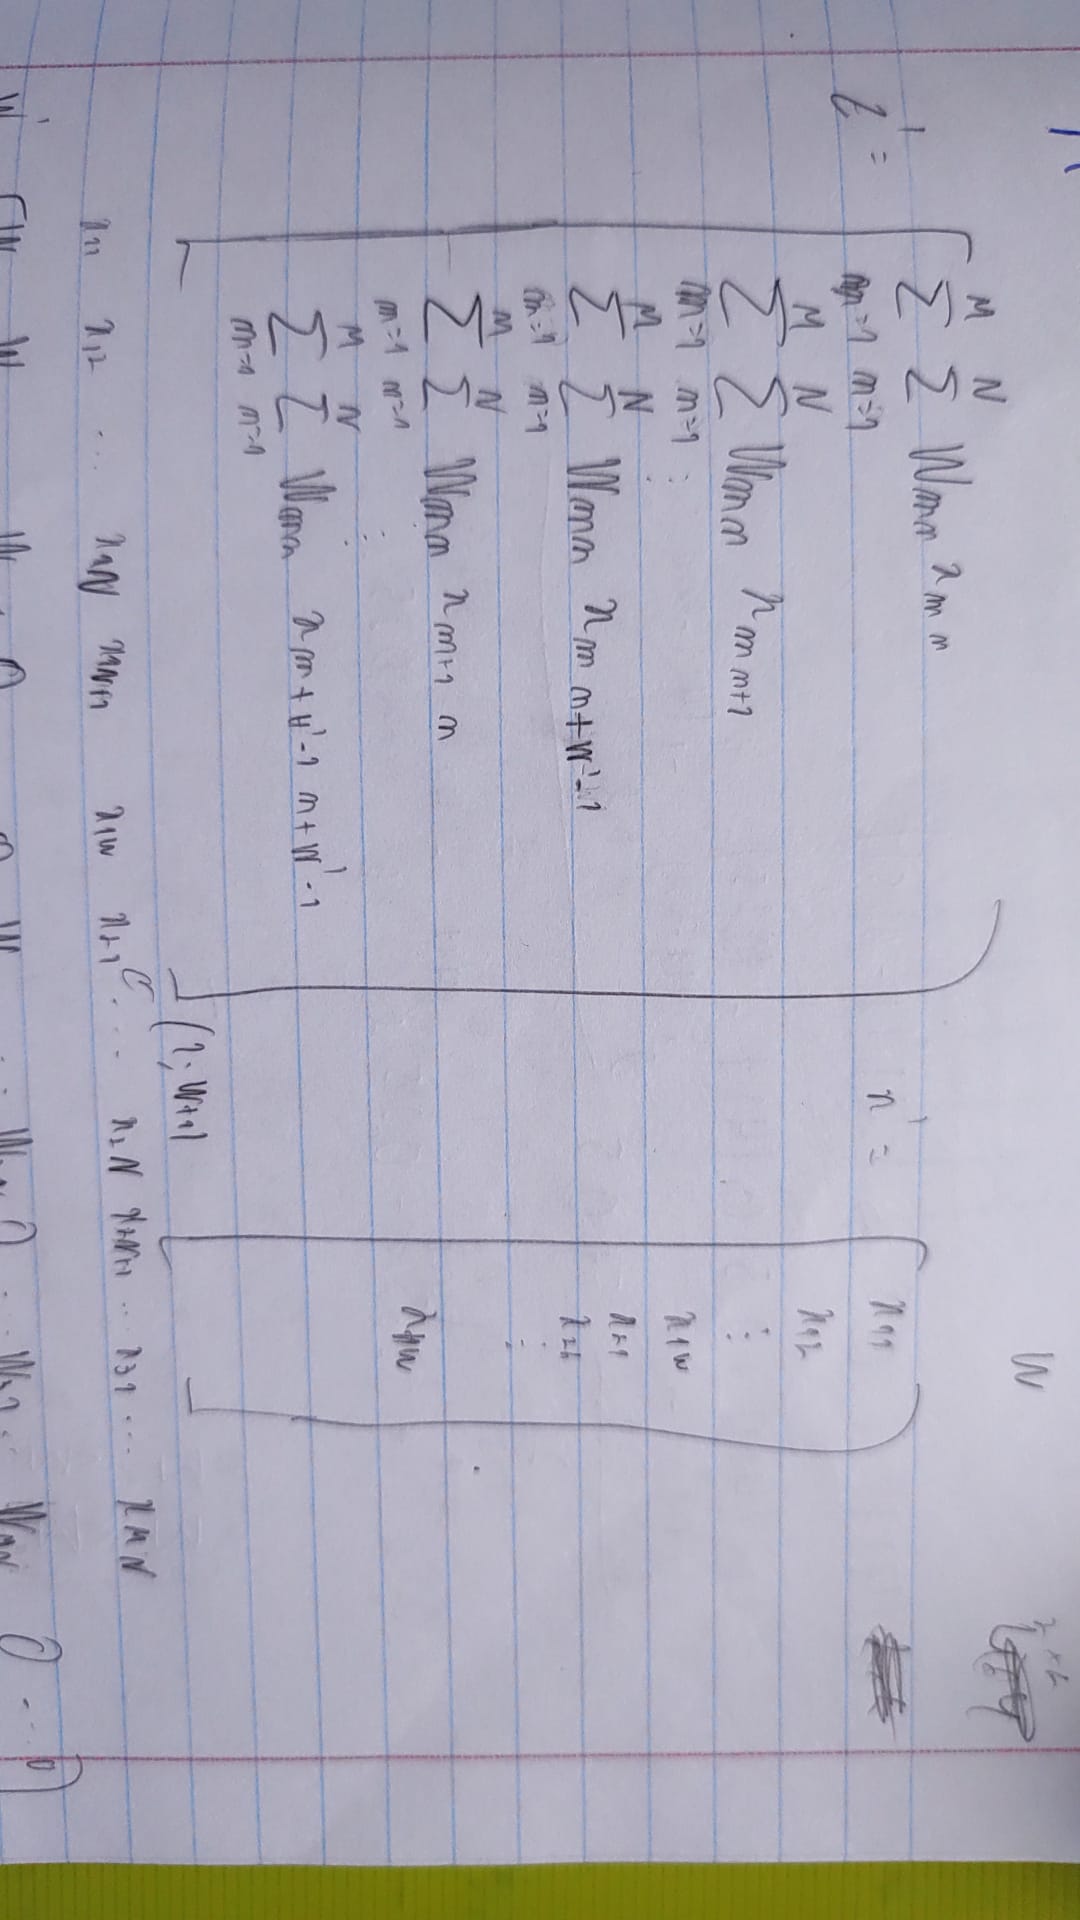 W
z' = [ Σ_{m=1}^{M} Σ_{n=1}^{N} W_{mn} x_{m n}
Σ_{m=1}^{M} Σ_{n=1}^{N} W_{mn} x_{m n+1}
⋮
Σ_{m=1}^{M} Σ_{n=1}^{N} W_{mn} x_{m n+W'-1}
Σ_{m=1}^{M} Σ_{n=1}^{N} W_{mn} x_{m+1 n}
⋮
Σ_{m=1}^{M} Σ_{n=1}^{N} W_{mn} x_{m+H'-1 n+W'-1} ]
x' = [ x_{11}
x_{12}
⋮
x_{1W}
x_{21}
x_{22}
⋮
x_{HW} ]
(1; W+1)
x_{11} x_{12} ... x_{1N} x_{1N+1} x_{1W} x_{21} ... x_{2N} x_{2N+1} ... x_{31} ... x_{MN}